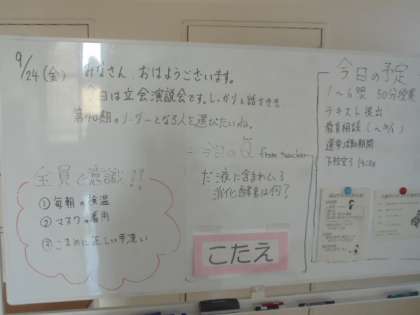 9/24(金) みなさん、おはようございます。
今日は立会演説会です。しっかりと話をきき
第40期のリーダーとなる人を選びたいね。
今日のQ from teacher
だ液に含まれる
消化酵素は何？
こたえ
全員で意識!!
①毎朝の検温
②マスク着用
③こまめに正しい手洗い
今日の予定
1〜6限 50分授業
テキスト提出
教育相談
選挙活動期間
下校完了